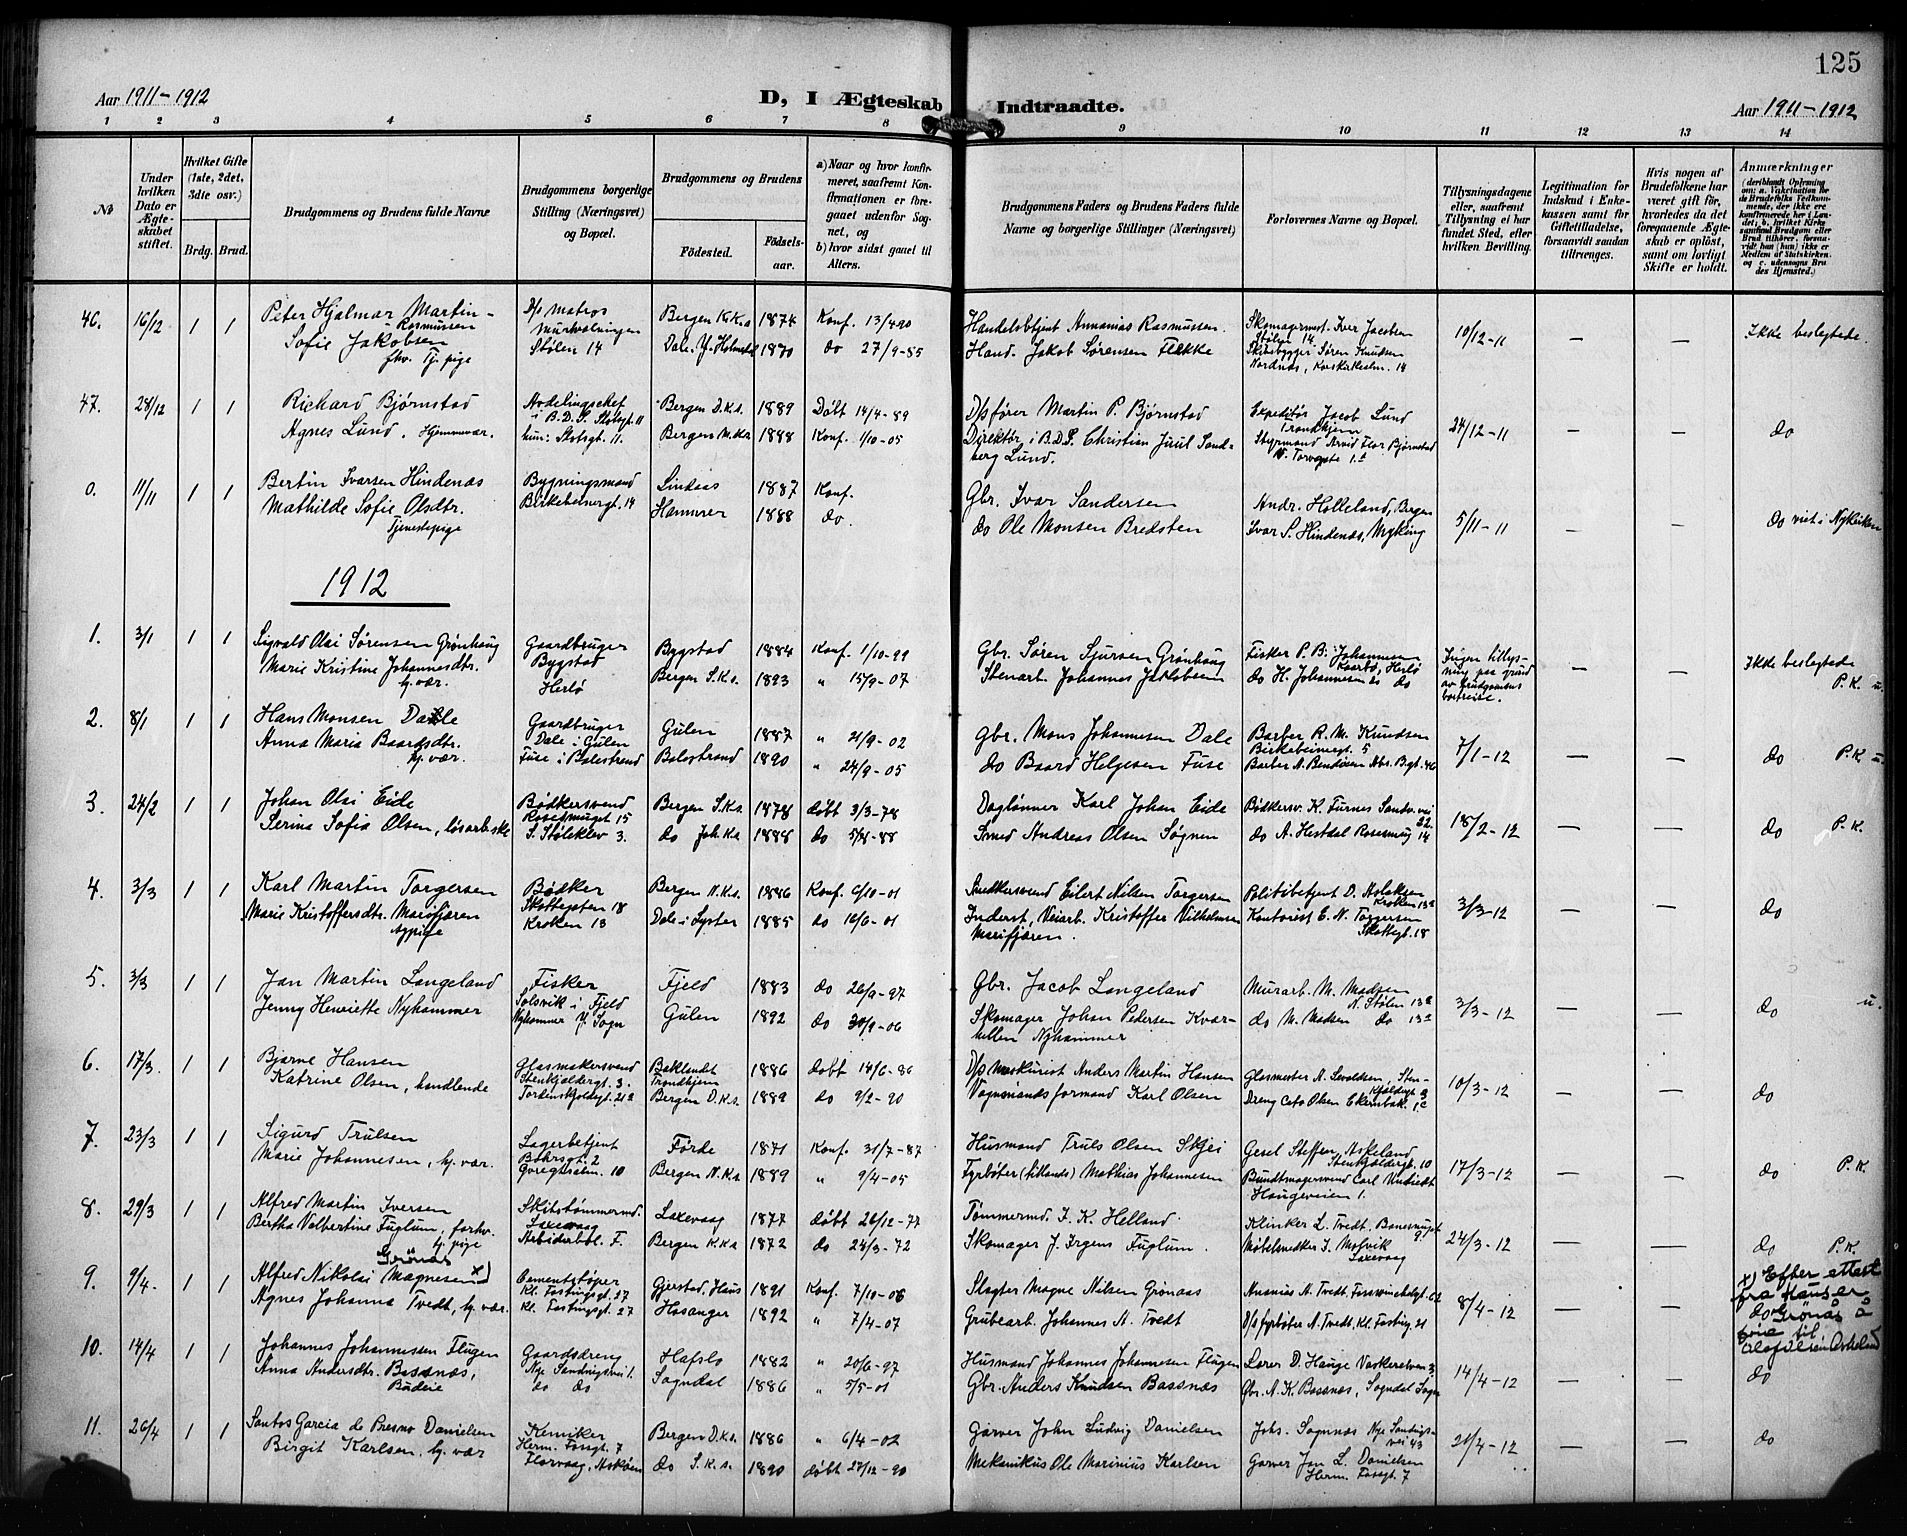 125
Aar 1911-1912
D, I Ægteskab Indtraadte.
Aar 1911-1912
1 2 3 4 5 6 7 8 9 10 11 12 13 14
No
Under hvilken Dato er Ægteskabet stiftet.
Hvilket Gifte (1ste, 2det, 3die osv.)
Brdg. Brud.
Brudgommens og Brudens fulde Navne
Brudgommens borgerlige Stilling (Næringsvei) og Bopæl.
Brudgommens og Brudens
Fødested. Fødselsaar.
a) Naar og hvor konfirmeret, saafremt Konfirmationen er foregaaet udenfor Sognet, og
b) hvor sidst gaaet til Alters.
Brudgommens Faders og Brudens Faders fulde Navne og borgerlige Stillinger (Næringsvei)
Forlovernes Navne og Bopæl.
Tillysningsdagene eller, saafremt Tillysning ei har fundet Sted, efter hvilken Bevilling.
Legitimation for Indskud i Enkekassen samt for Giftetilladelse, forsaavidt saadan tiltrænges.
Hvis nogen af Brudefolkene har været gift før, hvorledes da det foregaaende Ægteskab er opløst, samt om lovligt Skifte er holdt.
Anmærkninger
46. 16/12 1 1 Peter Hjalmar Martin Rasmussen D/s Matros Murhvalvningen Bergen K.K.s 1874 Konf. 13/4-90 Handelsbtjent Annanias Rasmussen. Skomagermest. Iver Jacobsen Stølen 14 10/12-11 — — Ikke beslegtede.
Sofie Jakobsen fhv. Tj. pige Stølen 14 Dale, Y. Holmedal 1870 do 27/9-85 Hand. Jakob Sørensen Flekke Skibsbygger Søren Knudsen Nordnæs, Korskirkealm. 14
47. 28/12 1 1 Richard Bjørnstad Avdelingschef i B.D.S. Slotsgt. 11 Bergen D.K.s. 1889 Døbt 14/4-89 D/sfører Martin P. Bjørnstad Expeditør Jacob Lund Trondhjem 24/12-11 — — do
Agnes Lund. Hjemmevær. hun: Slotsgt. 11. Bergen M.K.s 1888 Konf. 1/10-05 Direktør i B.D.S. Christian Juul Sandberg Lund. Styrmand Arvid Flor Bjørnstad N. Torvgate 1.a
0. 11/11 1 1 Bertin Ivarsen Hindenæs Bygningsmand Birkebeinergt. 14 Lindaas 1887 Konf. Gbr. Ivar Sandersen Andr. Holleland, Bergen 5/11-11 — — do viet i Nykirken
Mathilde Sofie Olsdtr. Tjenestepige Hammer 1888 do. do Ole Monsen Bredsten Ivar S. Hindenæs, Myking
1912
1. 3/1 1 1 Sigvald Olai Sørensen Grønhaug Gaardbruger Bygstad Bygstad 1884 Konf. 1/10-99 Gbr. Søren Sjursen Grønhaug Fisker P. B. Johannesen Kaarbø, Herlø Ingen tillysning paa grund av brudgommens bortreise. — — Ikke beslegtede P.K. u.
Marie Kristine Johannesdtr. hj. vær. Herlø Bergen S.K.s. 1893 " 15/9-07 Stenarb. Johannes Jakobsen do H. Johannesen ds do
2. 8/1 1 1 Hans Monsen Dale Gaardbruger Dale i Gulen Gulen 1887 " 21/9-02 Gbr. Mons Johannesen Dale Barber R. M. Knudsen Birkebeinergt. 5 7/1-12 — — do P.K u.
Anna Maria Baardsdtr. hj. vær. Fuse i Balestrand Balestrand 1890 " 24/9-05 do Baard Helgesen Fuse Barber A. Bendixen Nbr. Bgt. 46
3. 24/2 1 1 Johan Olai Eide Bødkersvend Rosesmuget 15 Bergen S.K.s 1878 døbt 3/3-78 Daglønner Karl Johan Eide Bødkersv. K. Furnes Sandv. vei 22 18/2-12 — — do P.K.
Serina Sofia Olsen, løsarbeiske S. Støleklev 3. do Joh.Ks 1888 do 5/8-88 Smed Andreas Olsen Søgnen do A. Hestdal Rosesmug 14
4. 3/3 1 1 Karl Martin Torgersen Bødker Skottegaten 18 Bergen N.K.s. 1886 Konf. 6/10-01 Snedkersvend Eilert Nilsen Torgersen Politibetjent D. Aslaksen Kroken 13a 3/3-12 — — do
Marie Kristoffersdtr. Marifjæren Kroken 13 Dale i Lyster 1885 do 16/6-01 Inderst, Veiarb. Kristoffer Vilhelmsen Marifjæren. Kontorist E. N. Torgersen Skottegt. 18
5. 3/3 1 1 Jan Martin Langeland Fisker Solsvik i Fjeld Fjeld 1883 do 26/9-97 Gbr. Jacob Langeland Murarb. M. Madsen N. Stølen 13a 3/3-12 — — do u.
Jenny Henriette Nyhammer Nyhammer Y. Sogn Gulen 1892 do 30/9-06 Skomager Johan Pedersen Kværhellen Nyhammer do M. Madsen do 13a
6. 17/3. 1 1 Bjarne Hansen Glasmakersvend Stenkjeldergt. 3. Baklandet Trondhjem 1886 døbt 14/6-86 D/s Maskinist Anders Martin Hansen Glasmester N. Sevaldsen, Stenkjeldergt 3 10/3-12 — — do
Katrine Olsen, handlende Torkenskjoldsgt. 21a Bergen D.K.s. 1889 do 9/2-90 Vognmandsformand Karl Olsen Dreng Olsen
7. 23/3 1 1 Sigurd Trulsen Lagerbetjent Bøhrsgt. 2 Førde 1871 Konf. 31/7-87 Husmand Truls Olsen Skjei Gesel Steffen Askeland Stenkjeldergt. 10 17/3-12 — — do P.K.
Marie Johannesen, hj. vær. 10 Bergen N.K.s. 1889 " 9/4-05 Fyrbøter (tillands) Mathias Johannesen Bundtmagersvend Carl Haugeveien 1.
8. 29/3 1 1 Alfred Martin Iversen Skibstømmermd. Laxevaag Laxevaag 1877 døbt 26/12-77 Tømmermd. I. K. Helland. Klinker L. Tvedt, Banesmuget 9. 24/3-12 — — do P.K.
Bertha Valbertine Fuglum, forhv. tj. pige Arbiderbol. F. Bergen K.Ks 1872 do 24/3-72 Skomager J. Irgens Fuglum. Møbelsnedker I. Molvik Laxevaag
9. 9/4. 1 1 Alfred Nikolai Magnesen x) Grönås Cementstøper Kl. Fastingsgt. 27 Gjersted, Haus 1891 Konf. 7/10-06 Slagter Magne Nilsen Grønaas A. Tvedt, 62 8/4-12 — — x) Efter attest fra Hauser do Grönås å
Agnes Johanna Tvedt, hj. vær. Kl. Fastingsgt. 27 Hosanger 1892 " 7/4-07 Grubearb. Johannes A. Tvedt D/sfyrbøter A. Tvedt, Kl. Fasting. 21
10. 14/4 1 1 Johannes Johannessen Flugen Gaardsdreng Nye Sandvigsvei 1. Hafslo 1882 " 20/6-97 Husmand Johannes Johannesen Flugen Lærer D. Hauge Vaskerelven 3. 14/4-12 — — do
Anna Andersdtr. Bassnæs, Budeie do do Sogndal 1886 " 5/5-01 Gbr. Anders Knudsen Bassnæs Gbr. A. K. Bassnæs, Sogndal Sogn
11. 26/4 1 1 Santos Garcia de Presno Danielsen Kemiker Herm. Fossgt. 7 Bergen D.K.s 1886 " 6/4-02 Garver John Ludvig Danielsen Johs. Sognnæs Nye Sandvigsvei 43 21/4-12 — — do
Birgit Karlsen, hj. vær Florvaag, Askøen do S.K.s. 1890 døbt 27/12-90 Mekanikus Ole Marinius Karlsen Garver Jan L. Danielsen Herm. Fossgt. 7